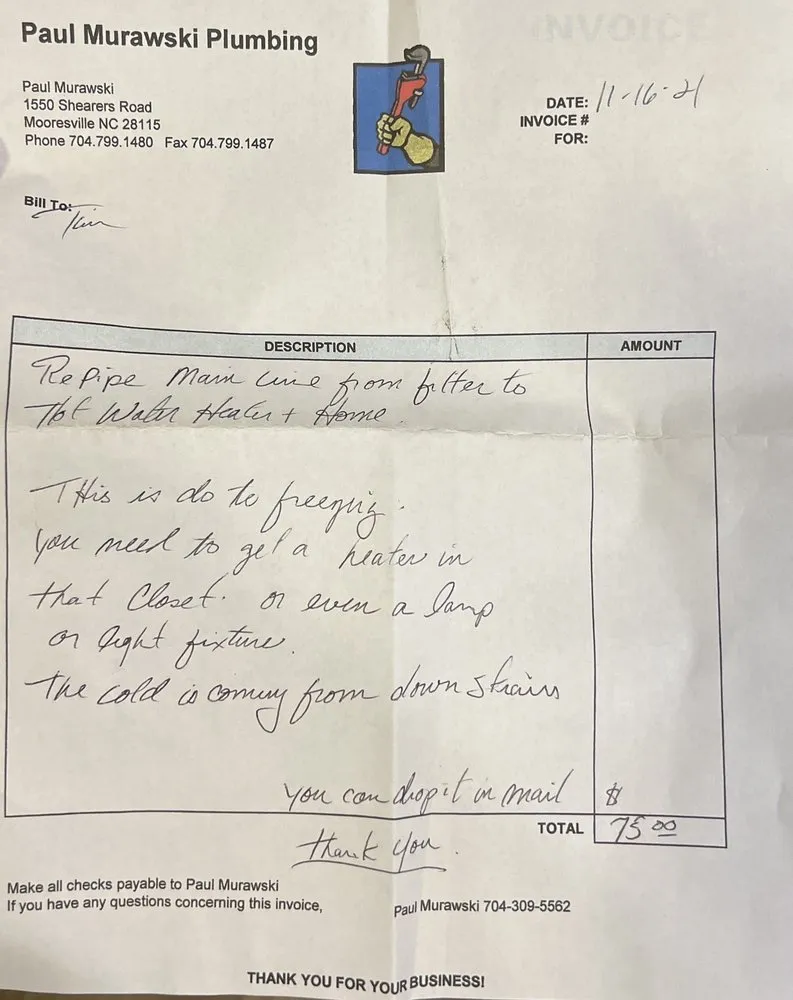 Paul Murawski Plumbing
INVOICE
Paul Murawski
1550 Shearers Road
Mooresville NC 28115
Phone 704.799.1480 Fax 704.799.1487
DATE: 11-16-21
INVOICE #
FOR:
Bill To:
DESCRIPTION AMOUNT
Repipe Main line from filter to
Hot Water Heater + Home.
THis is do to freezing.
You need to get a heater in
that Closet. or even a lamp
or light fixture.
The cold is coming from down strairs
You can drop it in mail $
TOTAL 75.00
Thank you.
Make all checks payable to Paul Murawski
If you have any questions concerning this invoice, Paul Murawski 704-309-5562
THANK YOU FOR YOUR BUSINESS!